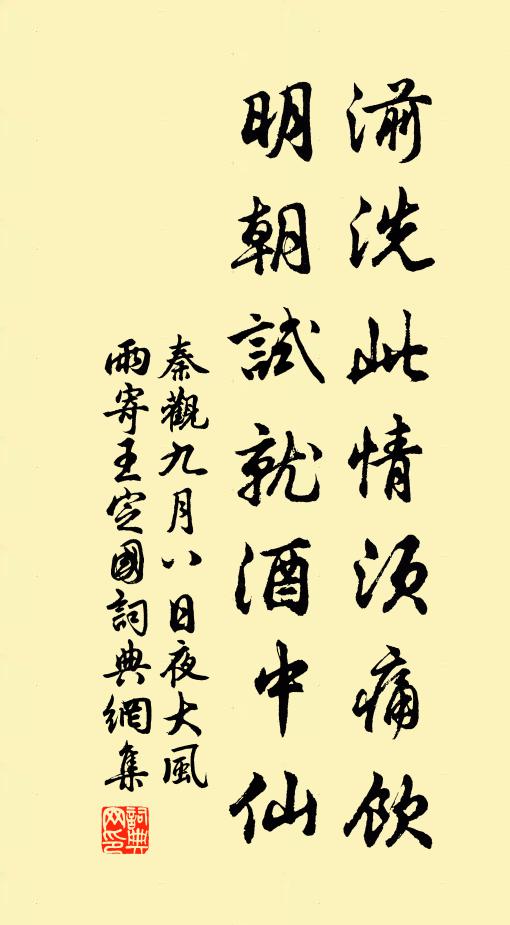 湔洗此情须痛饮
明朝試就酒中仙
秦觀九月八日夜大風
雨寄王定國詞典網集
詞典
网印